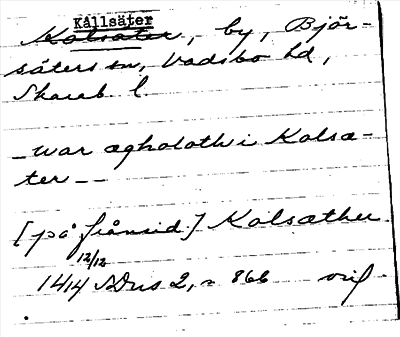 Kållsäter
Kolsäter, by, Björ-
säters sn, Vadsbo hd,
Skarab. l.
- war ægholoth i Kolsæ-
ter --
[på frånsid.] Kolsæther
12/12
1414 SDns 2, n 866 orig.